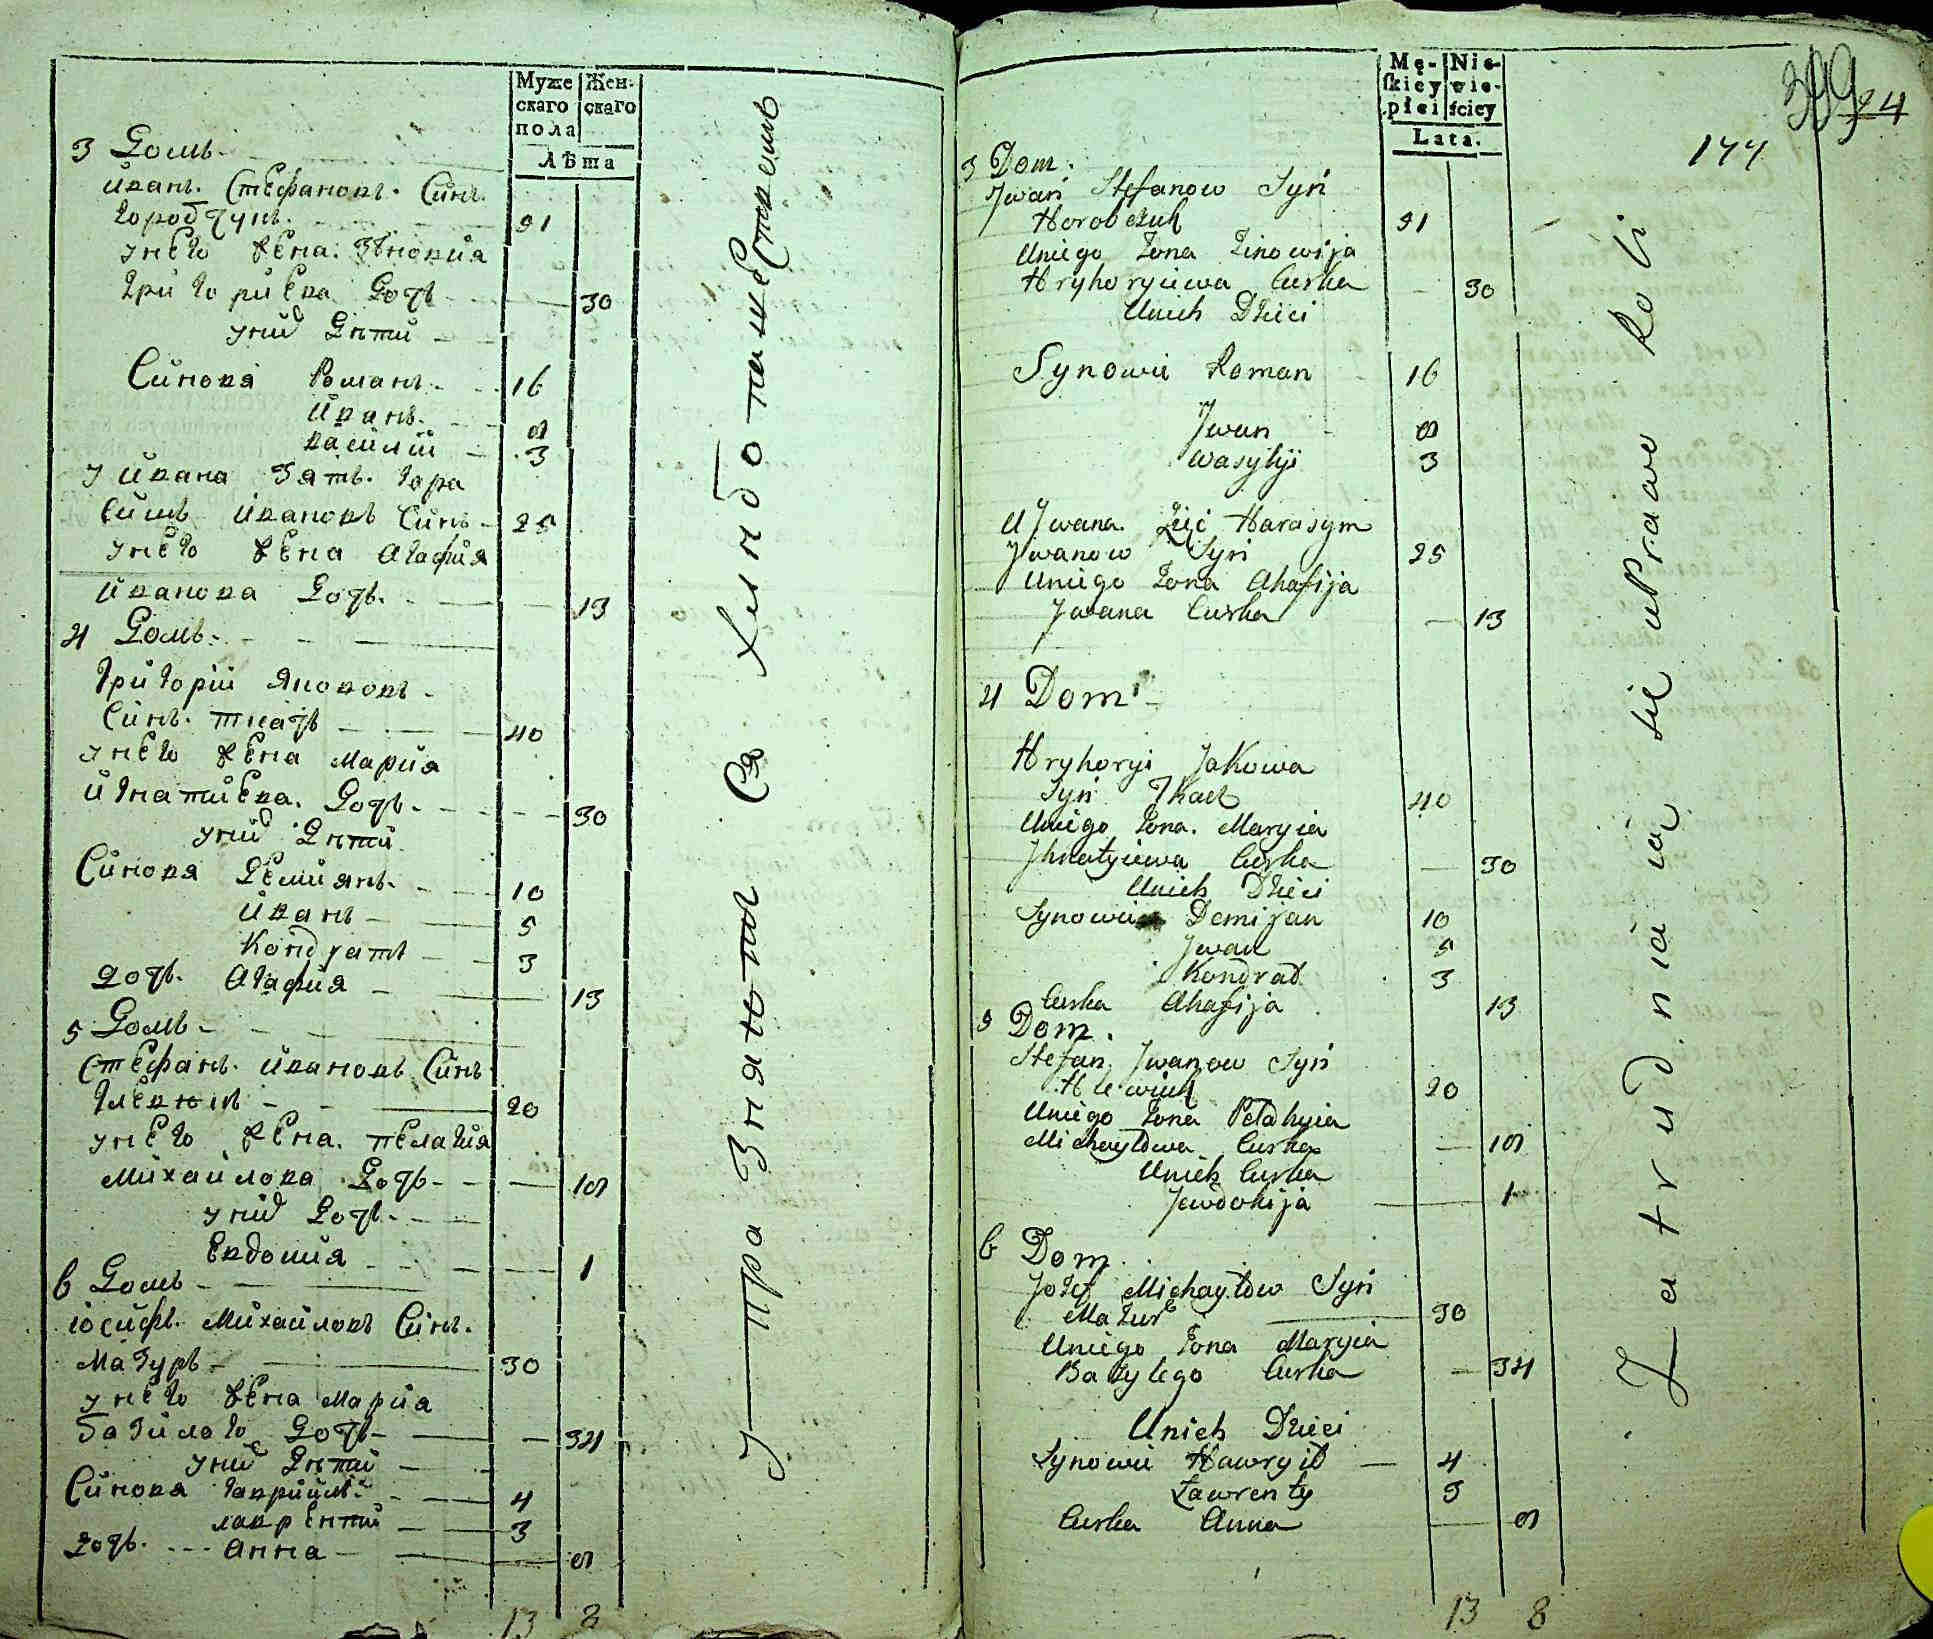 Муже Жен-
скаго скаго
пола
Лѣта
3 Домъ
Иванъ. Стефановъ. Синъ.
Горобчукъ. 31
у него Жена. Зѣновия
Григориева Дочь 30
у нихъ Дѣти
Синовя Романъ 16
Иванъ. 9
Василий 3
у Ивана Зять. Гара
симъ Ивановъ Синъ 25
у него Жена Агафия
Иванова Дочь. 13
4 Домъ.
Григорий Якововъ
Синъ. ткачъ 40
у него Жена Мария
Игнатиева. Дочь. 30
у нихъ Дѣти.
Синовя Демиянъ. 10
Иванъ 5
Кондратъ 3
Дочь. Агафия 13
5 Домъ
Стефанъ. Ивановъ Синъ.
20
у него Жена. Пелагия
Михайлова Дочь 19
у нихъ Дочь.
Евдокия 1
6 Домъ
Иосифъ. Михайловъ Синъ.
Мазуръ 30
у него Жена Мария
Базилого Дочь 34
у нихъ Дѣти
Синовя Гавриилъ 4
Лаврентий 3
Дочь. Анна 9
13 8
Mę- Nie-
ſkiey wie-
płci ſciey
Lata.
177
24
3 Dom.
Jwan Stefanow Syn
Horobczuk 31
Uniego Zona Zinowija
Hryhoryiewa Curka 30
Unich Dzieci
Synowie Roman 16
Jwan 9
Wasylyi 3
U Jwana. Zięć Harasym
Jwanow Syn 25
Uniego Zona Ahafija
Jwana Curka 13
4 Dom
Hryhoryi Jakowa
Syn Tkacz 40
Uniego Zona. Maryia
Jhnatyiewa Curka 30
Unich Dzieci
Synowie Demijan 10
Jwan 5
Kondrad 3
Curka Ahafija 13
5 Dom.
Stefan Jwanow Syn
20
Uniego Zona Pelahyia
Michayłowa Curka 19
Unich Curka
Jewdokija 1
6 Dom
Jozef Michayłow Syn
Mazur 30
Uniego Zona Maryia
Bazylego Curka 34
Unich Dzieci
Synowie Hawryił 4
Ławrenty 3
Curka Anna 9
13 8